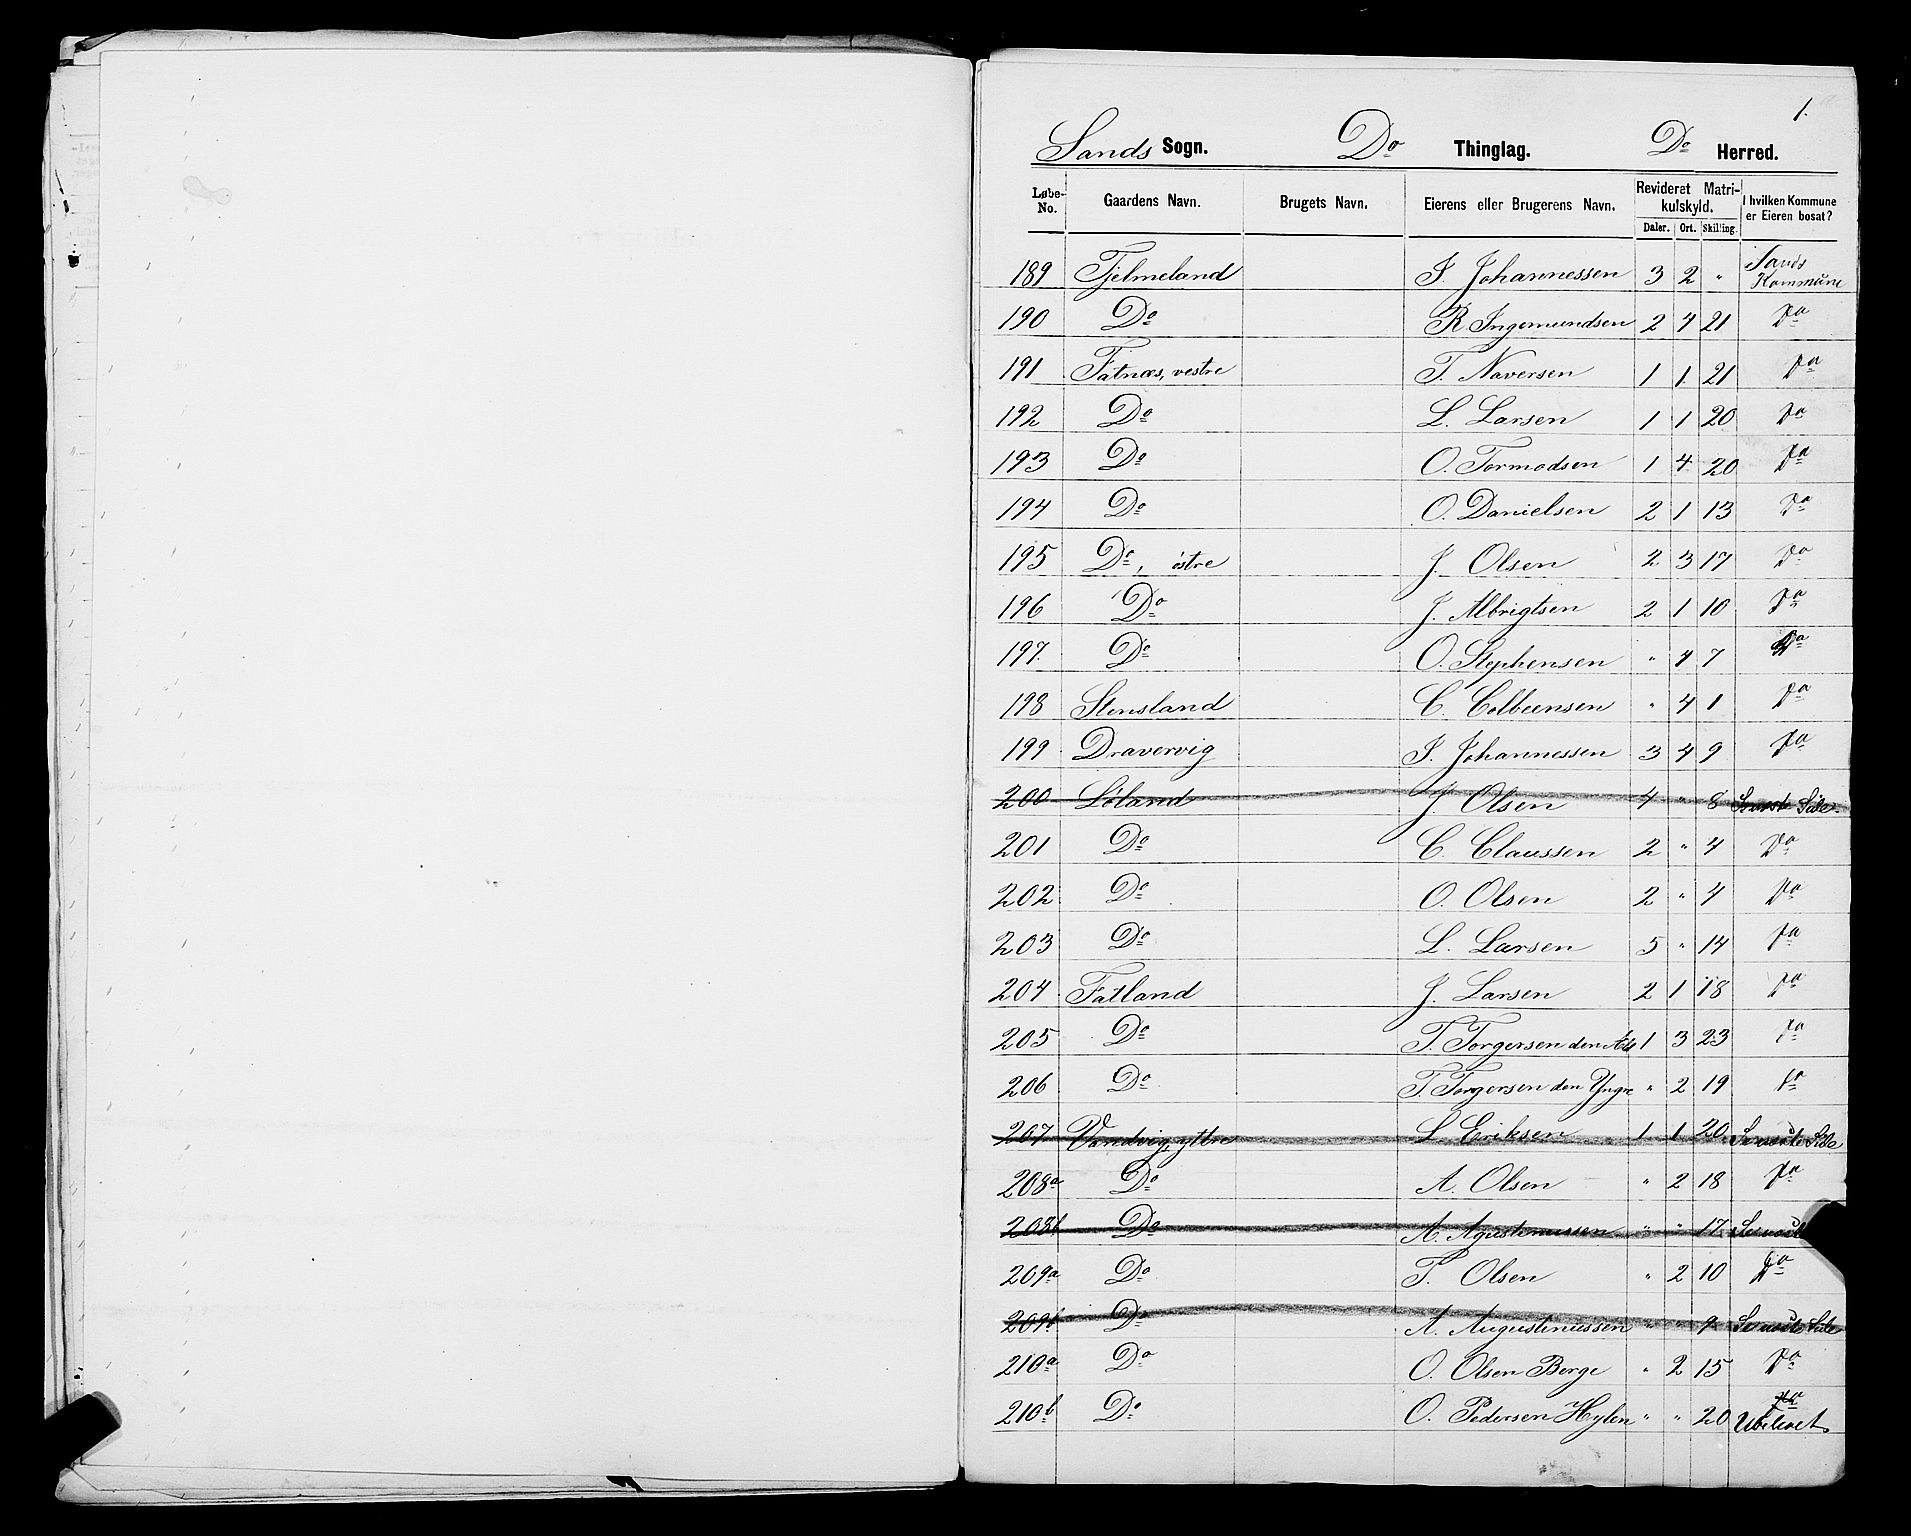 1.
Sands Sogn. Do Thinglag. Do Herred.
Løbe-No. Gaardens Navn. Brugets Navn. Eierens eller Brugerens Navn. Revideret Matrikulskyld. I hvilken Kommune er Eieren bosat?
Daler. Ort. Skilling.
189 Tjelmeland I. Johannessen 3 2 " Sands Kommune
190 Do R Ingemundsen 2 4 21 Do
191 Fatnæs, vestre T. Naversen 1 1 21 Do
192 Do L. Larsen 1 1 20 Do
193 Do O. Tormodsen 1 4 20 Do
194 Do O. Danielsen 2 1 13 Do
195 Do, østre J. Olsen 2 3 17 Do
196 Do J. Albrigtsen 2 1 10 Do
197. Do O. Stephensen " 4 7 Do
198 Stensland C. Colbeensen " 4 1 Do
199 Dravervig I. Johannessen 3 4 9 Do
200 Løland J. Olsen 4 " 8 Se næste Side
201 Do C. Claussen 2 " 4 Do
202 Do O. Olsen 2 " 4 Do
203 Do L. Larsen 5 " 14 Do
204 Fatland J. Larsen 2 1 18 Do
205 Do T. Torgersen den 1 3 23 Do
206 Do T. Torgersen den Yngre " 2 19 Do
207 Vandvig, yttre L Eriksen 1 1 20 Se næste Side
208a Do A. Olsen " 2 18 Do
208b Do A. Agustinussen " " 17 Se næste
209a Do T. Olsen " 2 10 Do
209b Do A. Augustinussen " " 9 Se næste Side
210a Do O. Olsen Berge " 2 15 Do
210b Do O. Pedersen Hylen " " 20 Do Ubeboet